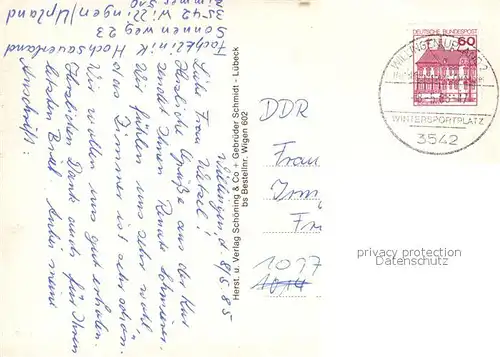 Willingen, d. 8/5. 85
Liebe Frau Wetzel!
Herzliche Grüße aus der Kur
sendet Ihnen Renate
Wir fühlen uns sehr wohl,
das Zimmer ist sehr schön.
Wir wollen uns gut erholen.
Herzlichen Dank auch für Ihren
letzten Brief. Anbei meine
Anschrift:
Fachklinik Hochsauerland
Sonnenweg 23
3542 Willingen/Upland
Zimmer 510
Herst. u. Verlag Schöning & Co + Gebrüder Schmidt - Lübeck
bs Bestellnr. Wigen 602
DEUTSCHE BUNDESPOST
60
WILLINGEN, UPLAND 2
WINTERSPORTPLATZ
3542
DDR
Frau
Irm
Fr
1017
1014
privacy protection
Datenschutz